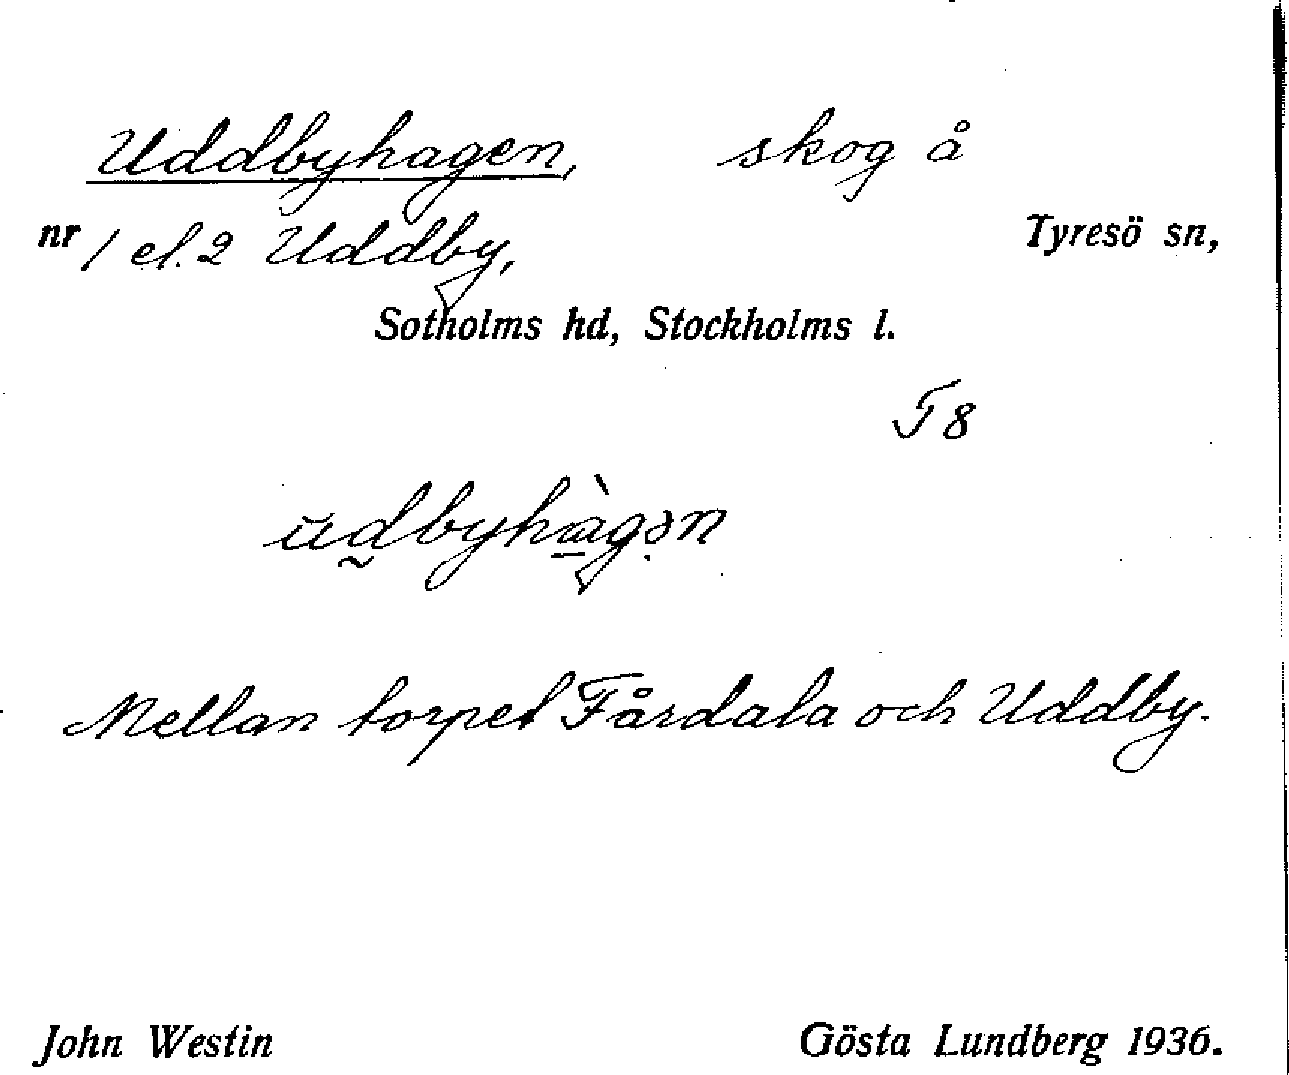 Uddbyhagen, skog å
nr 1 el. 2 Uddby, Tyresö sn,
Sotholms hd, Stockholms l.
F 8
ŭd̰byhà̱gə̣n
Mellan torpet Fårdala och Uddby.
John Westin Gösta Lundberg 1936.